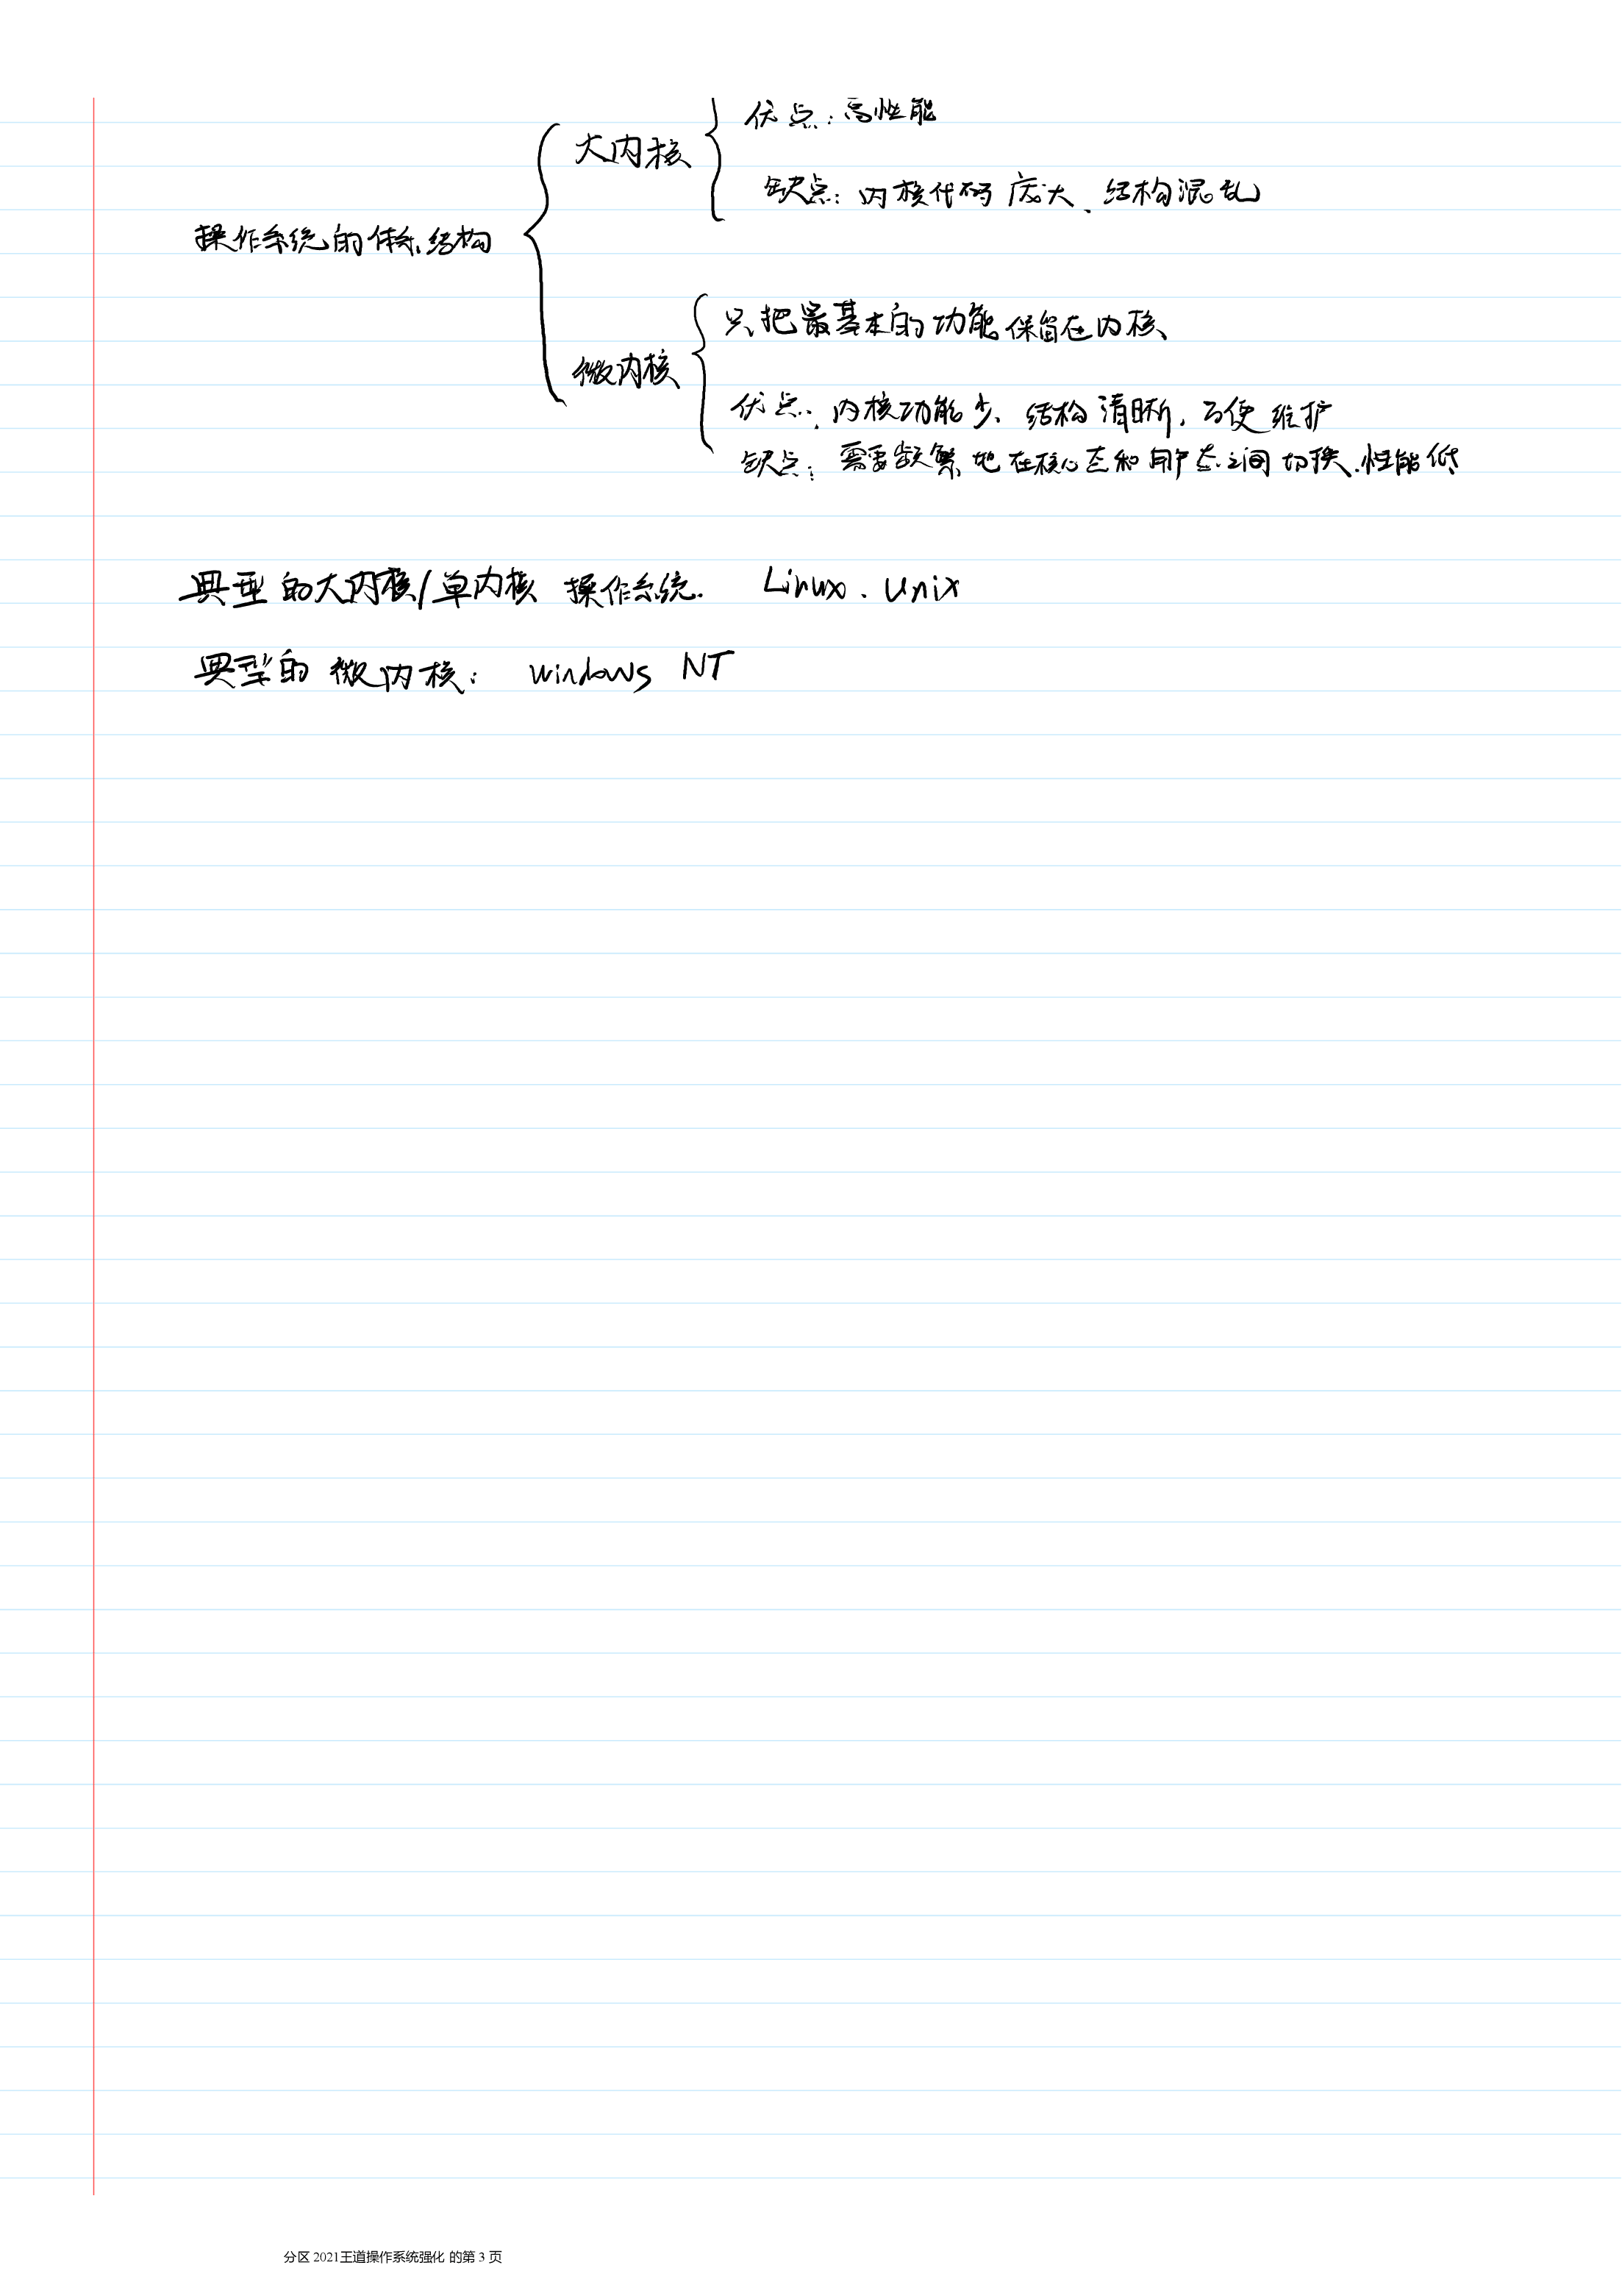 优点:高性能
大内核
缺点:内核代码庞大、结构混乱
操作系统的体系结构
只把最基本的功能保留在内核
微内核
优点:内核功能少、结构清晰,方便维护
缺点:需要频繁地在核心态和用户态之间切换、性能低
典型的大内核/单内核 操作系统. Linux、Unix
典型的微内核: windows NT
分区 2021王道操作系统强化 的第 3 页